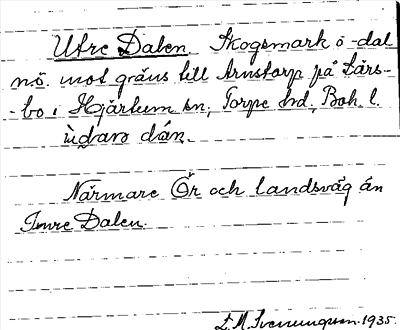 Utre Dalen Skogsmark o -dal
nö. mot gräns till Arnstorp på Lårs-
-bo i Hjärtum sn, Torpe hd, Boh. l.
ùdarə dán.
Närmare Ör och landsväg än
Inre Dalen.
E.M. Svenungsson. 1935.